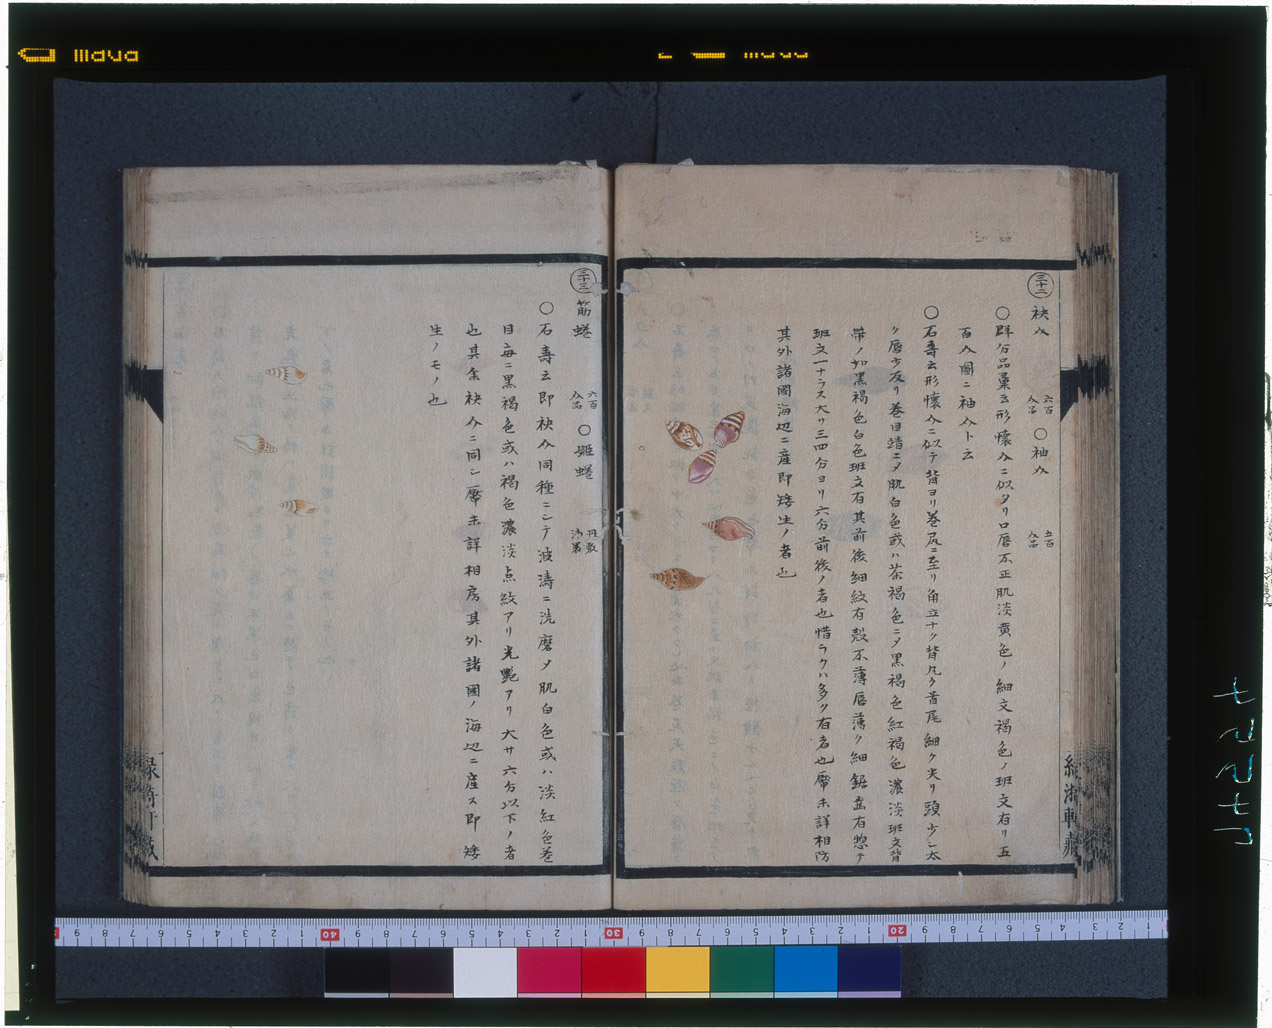 三十二 袂介 六百介品 〇袖介 五百介品
〇群分品彙云形懐介ニ似タリ口唇不正肌淡黄色ノ細文褐色ノ班文有リ五
百介圖ニ袖介ト云
〇石壽云形懐介ニ似テ背ヨリ巻尻ニ至リ角立ナク背凡ク首尾細ク尖リ頭少シ太
ク唇少反リ巻目靖ニメ肌白色或ハ茶褐色ニメ黒褐色紅褐色濃淡班文背
帶ノ如黒褐色白色班文有其前後細紋有殻不薄唇薄ク細鋸歯有惣テ
班文一ナラス大サ三四分ヨリ六分前後ノ者也惜ラクハ多ク有者也
其外諸國海辺ニ産即矮生ノ者也
三十三 筋蜷 六百介品 〇姫蜷
〇石壽云即袂介同種ニシテ波濤ニ洗磨メ肌白色或ハ淡紅色巻
目毎ニ黒褐色或ハ褐色濃淡点紋アリ光艶アリ大サ六分以下ノ者
也其余袂介ニ同シ 未詳相房其外諸國ノ海辺ニ産ス即矮
生ノモノ也
20
30
40